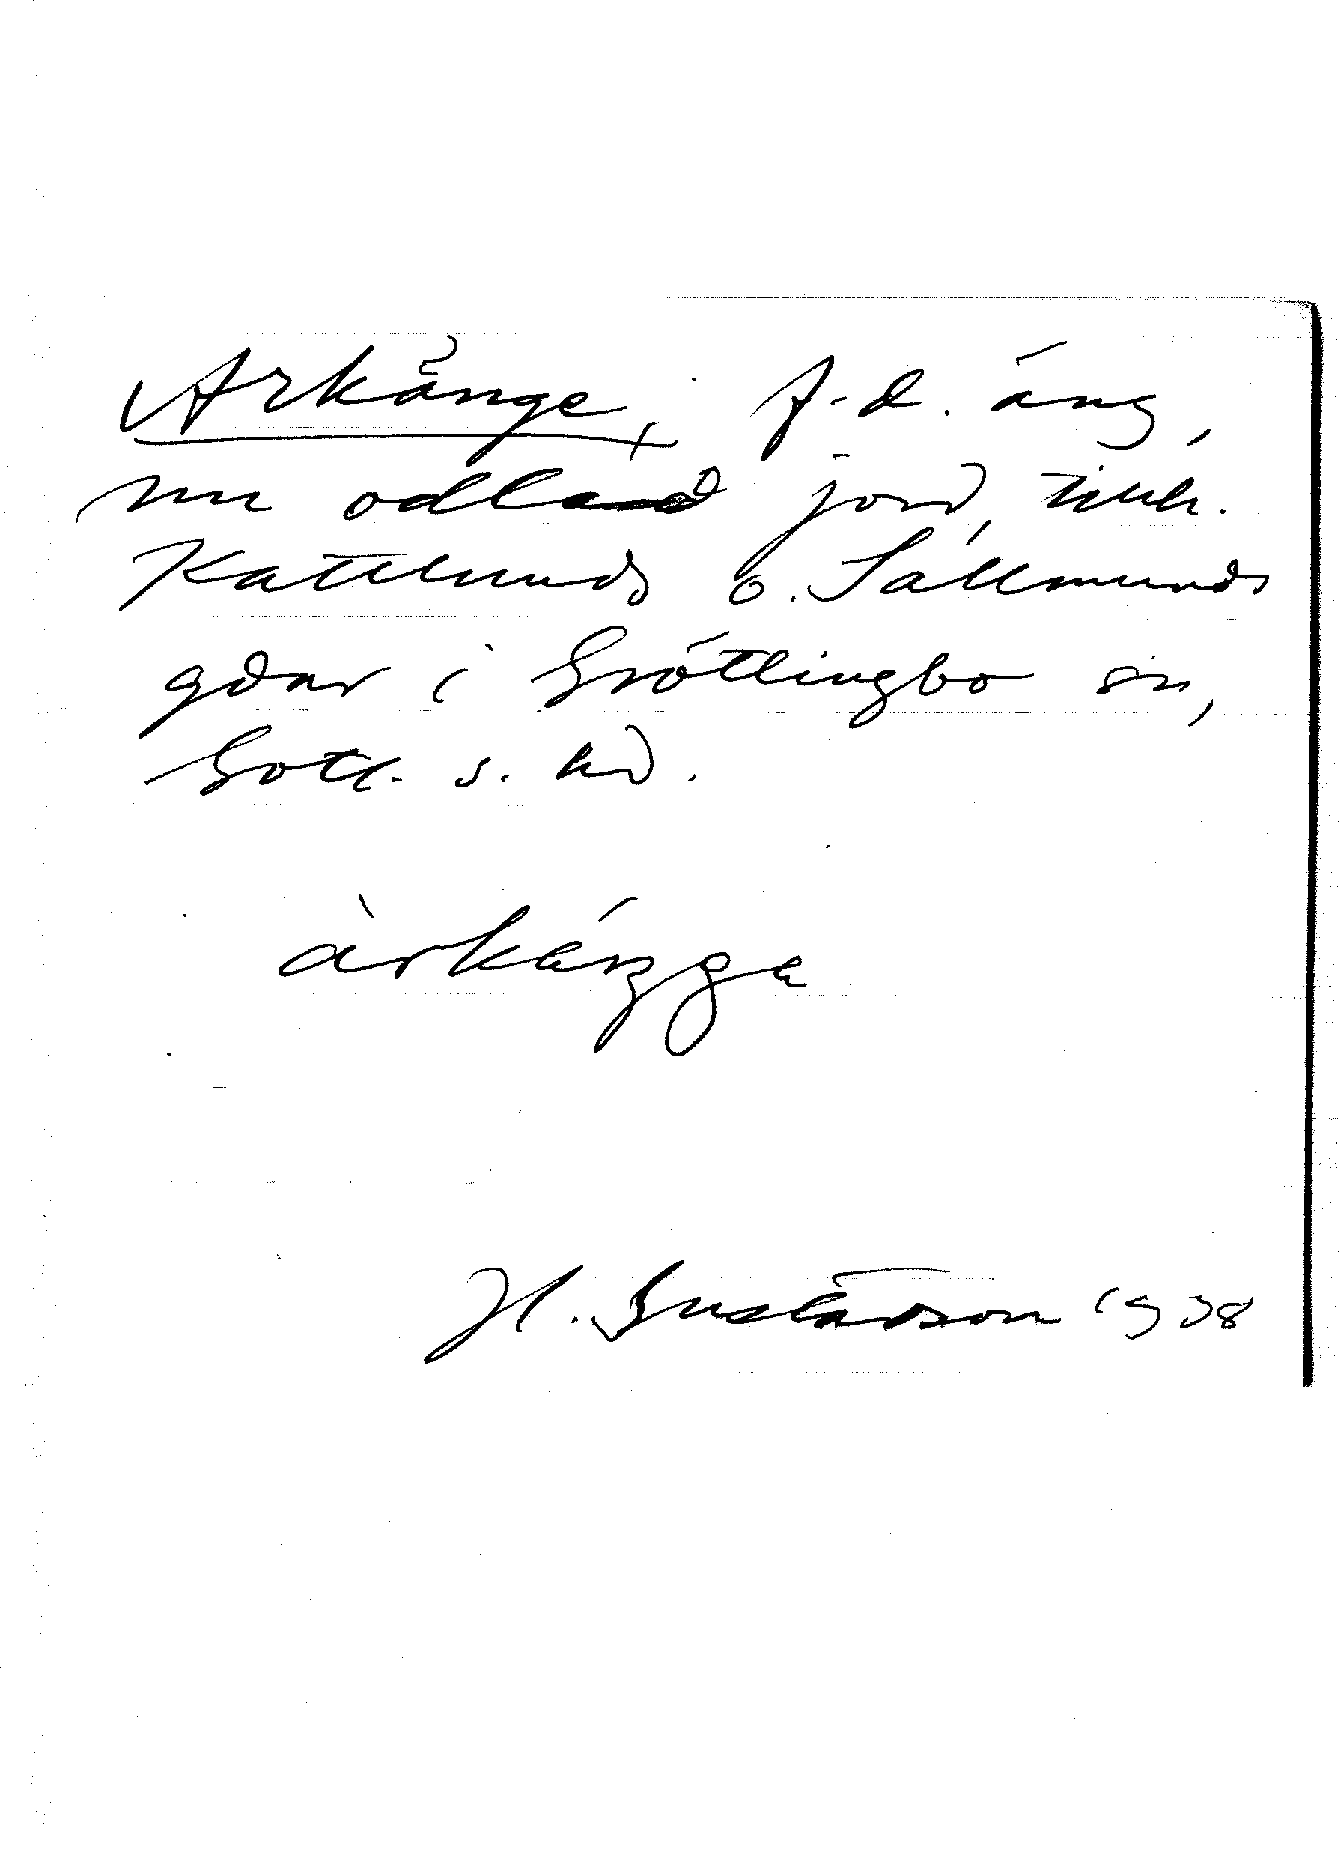 Arkänge, f.d. äng,
nu odlad jord, tillh.
Kattlunds o. Sällmunds
gdar i Grötlingbo sn,
Gotl. s. hd.
àrkáŋga
H. Gustavson 1938